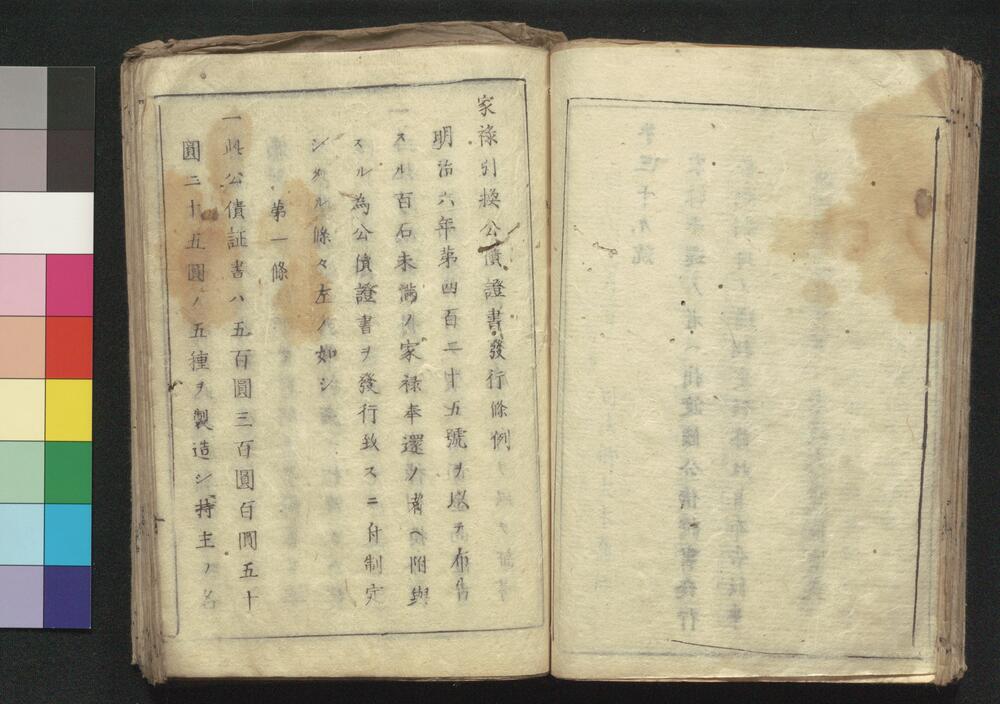 家祿引換公債證書發行條例
明治六年第四百二十五號ヲ以テ布告
スル百石未滿ノ家禄奉還ノ者ヘ附與
スル為公債證書ヲ發行致スニ付制定
シタル條々左ノ如シ
第一條
一此公債証書ハ五百圓三百圓百圓五十
圓二十五圓ノ五種ヲ製造シ持主ノ名